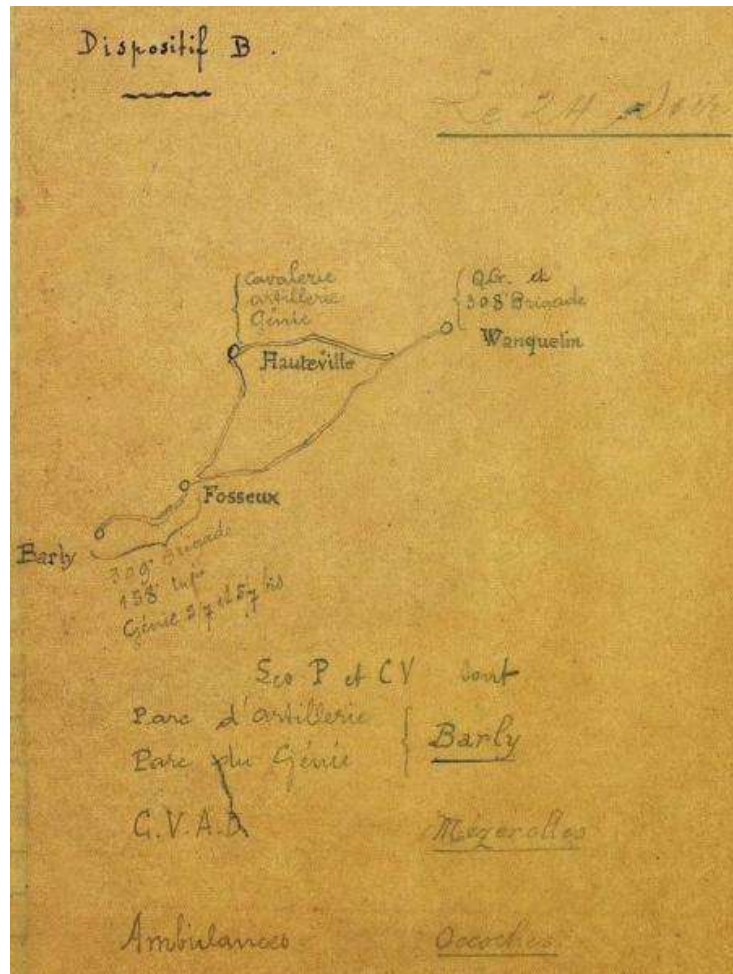 Dispositif B.
Le 24 Soir
Cavalerie
artillerie
Génie
Q.G. et
308e Brigade
Wanquetin
Hauteville
Fosseux
Barly
309e Brigade
158e Inf
Génie 5/7 et 5/7 bis
P et CV
Parc d'artillerie
Parc du Génie
Barly
C.V.A.D
Mézerolles
Ambulances
Occoches